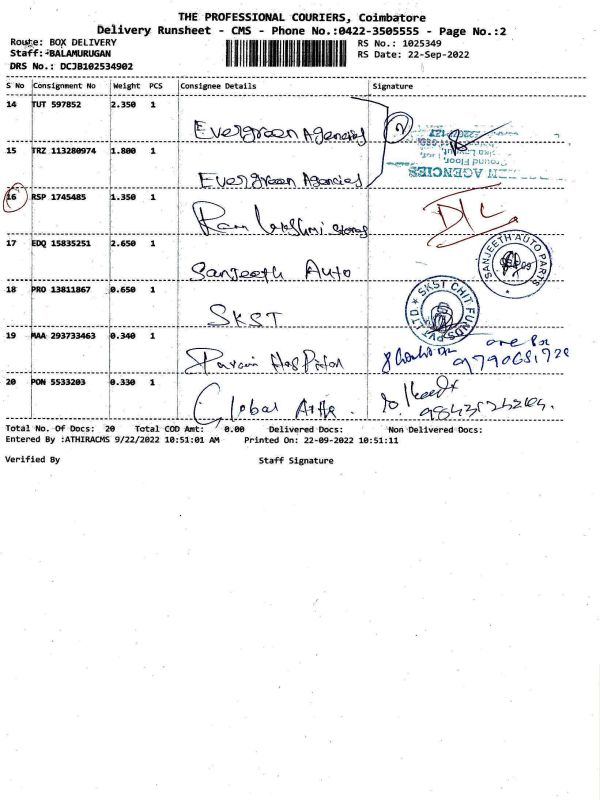 THE PROFESSIONAL COURIERS, Coimbatore
Delivery Runsheet - CMS - Phone No.:0422-3505555 - Page No.:2
Route: BOX DELIVERY RS No.: 1025349
Staff: BALAMURUGAN RS Date: 22-Sep-2022
DRS No.: DCJB102534902
S No Consignment No Weight PCS Consignee Details Signature
14 TUT 597852 2.350 1
Evergreen Agencies 2
15 TRZ 113280974 1.800 1
Evergreen Agencies
Ground Floor,
EEN AGENCIES
16 RSP 1745485 1.350 1
Ram Lakshmi stores D/L
17 EDQ 15835251 2.650 1
Sanjeeth Auto
SANJEETH AUTO PARTS
18 PRO 13811867 0.650 1
SKST
SKST CHIT FUNDS PVT LTD.
19 MAA 293733463 0.340 1
Hospital
20 PON 5533203 0.330 1
Global
Total No. Of Docs: 20 Total COD Amt: 0.00 Delivered Docs: Non Delivered Docs:
Entered By :ATHIRACMS 9/22/2022 10:51:01 AM Printed On: 22-09-2022 10:51:11
Verified By Staff Signature